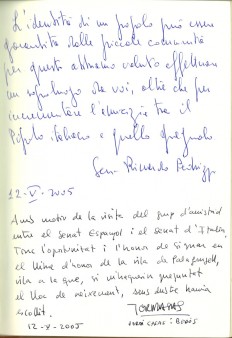 L'identità di un popolo può essere
garantita dalle piccole comunità
per questo abbiamo voluto effettuare
un sopraluogo da voi, oltre che per
incrementare l'amicizia tra il
Popolo Italiano e quello spagnolo
Sen.
12-V-2005
Amb motiu de la visita del grup d'amistad
entre el Senat Espanyol i el senat d'Italia,
Tinc l'oportunitat i l'honor de signar en
el llibre d'honor de la vila de Palafrugell,
vila a la que, si m'haguessin preguntat
el lloc de naixement, sens dubte hauria
escollit.
12-5-2005